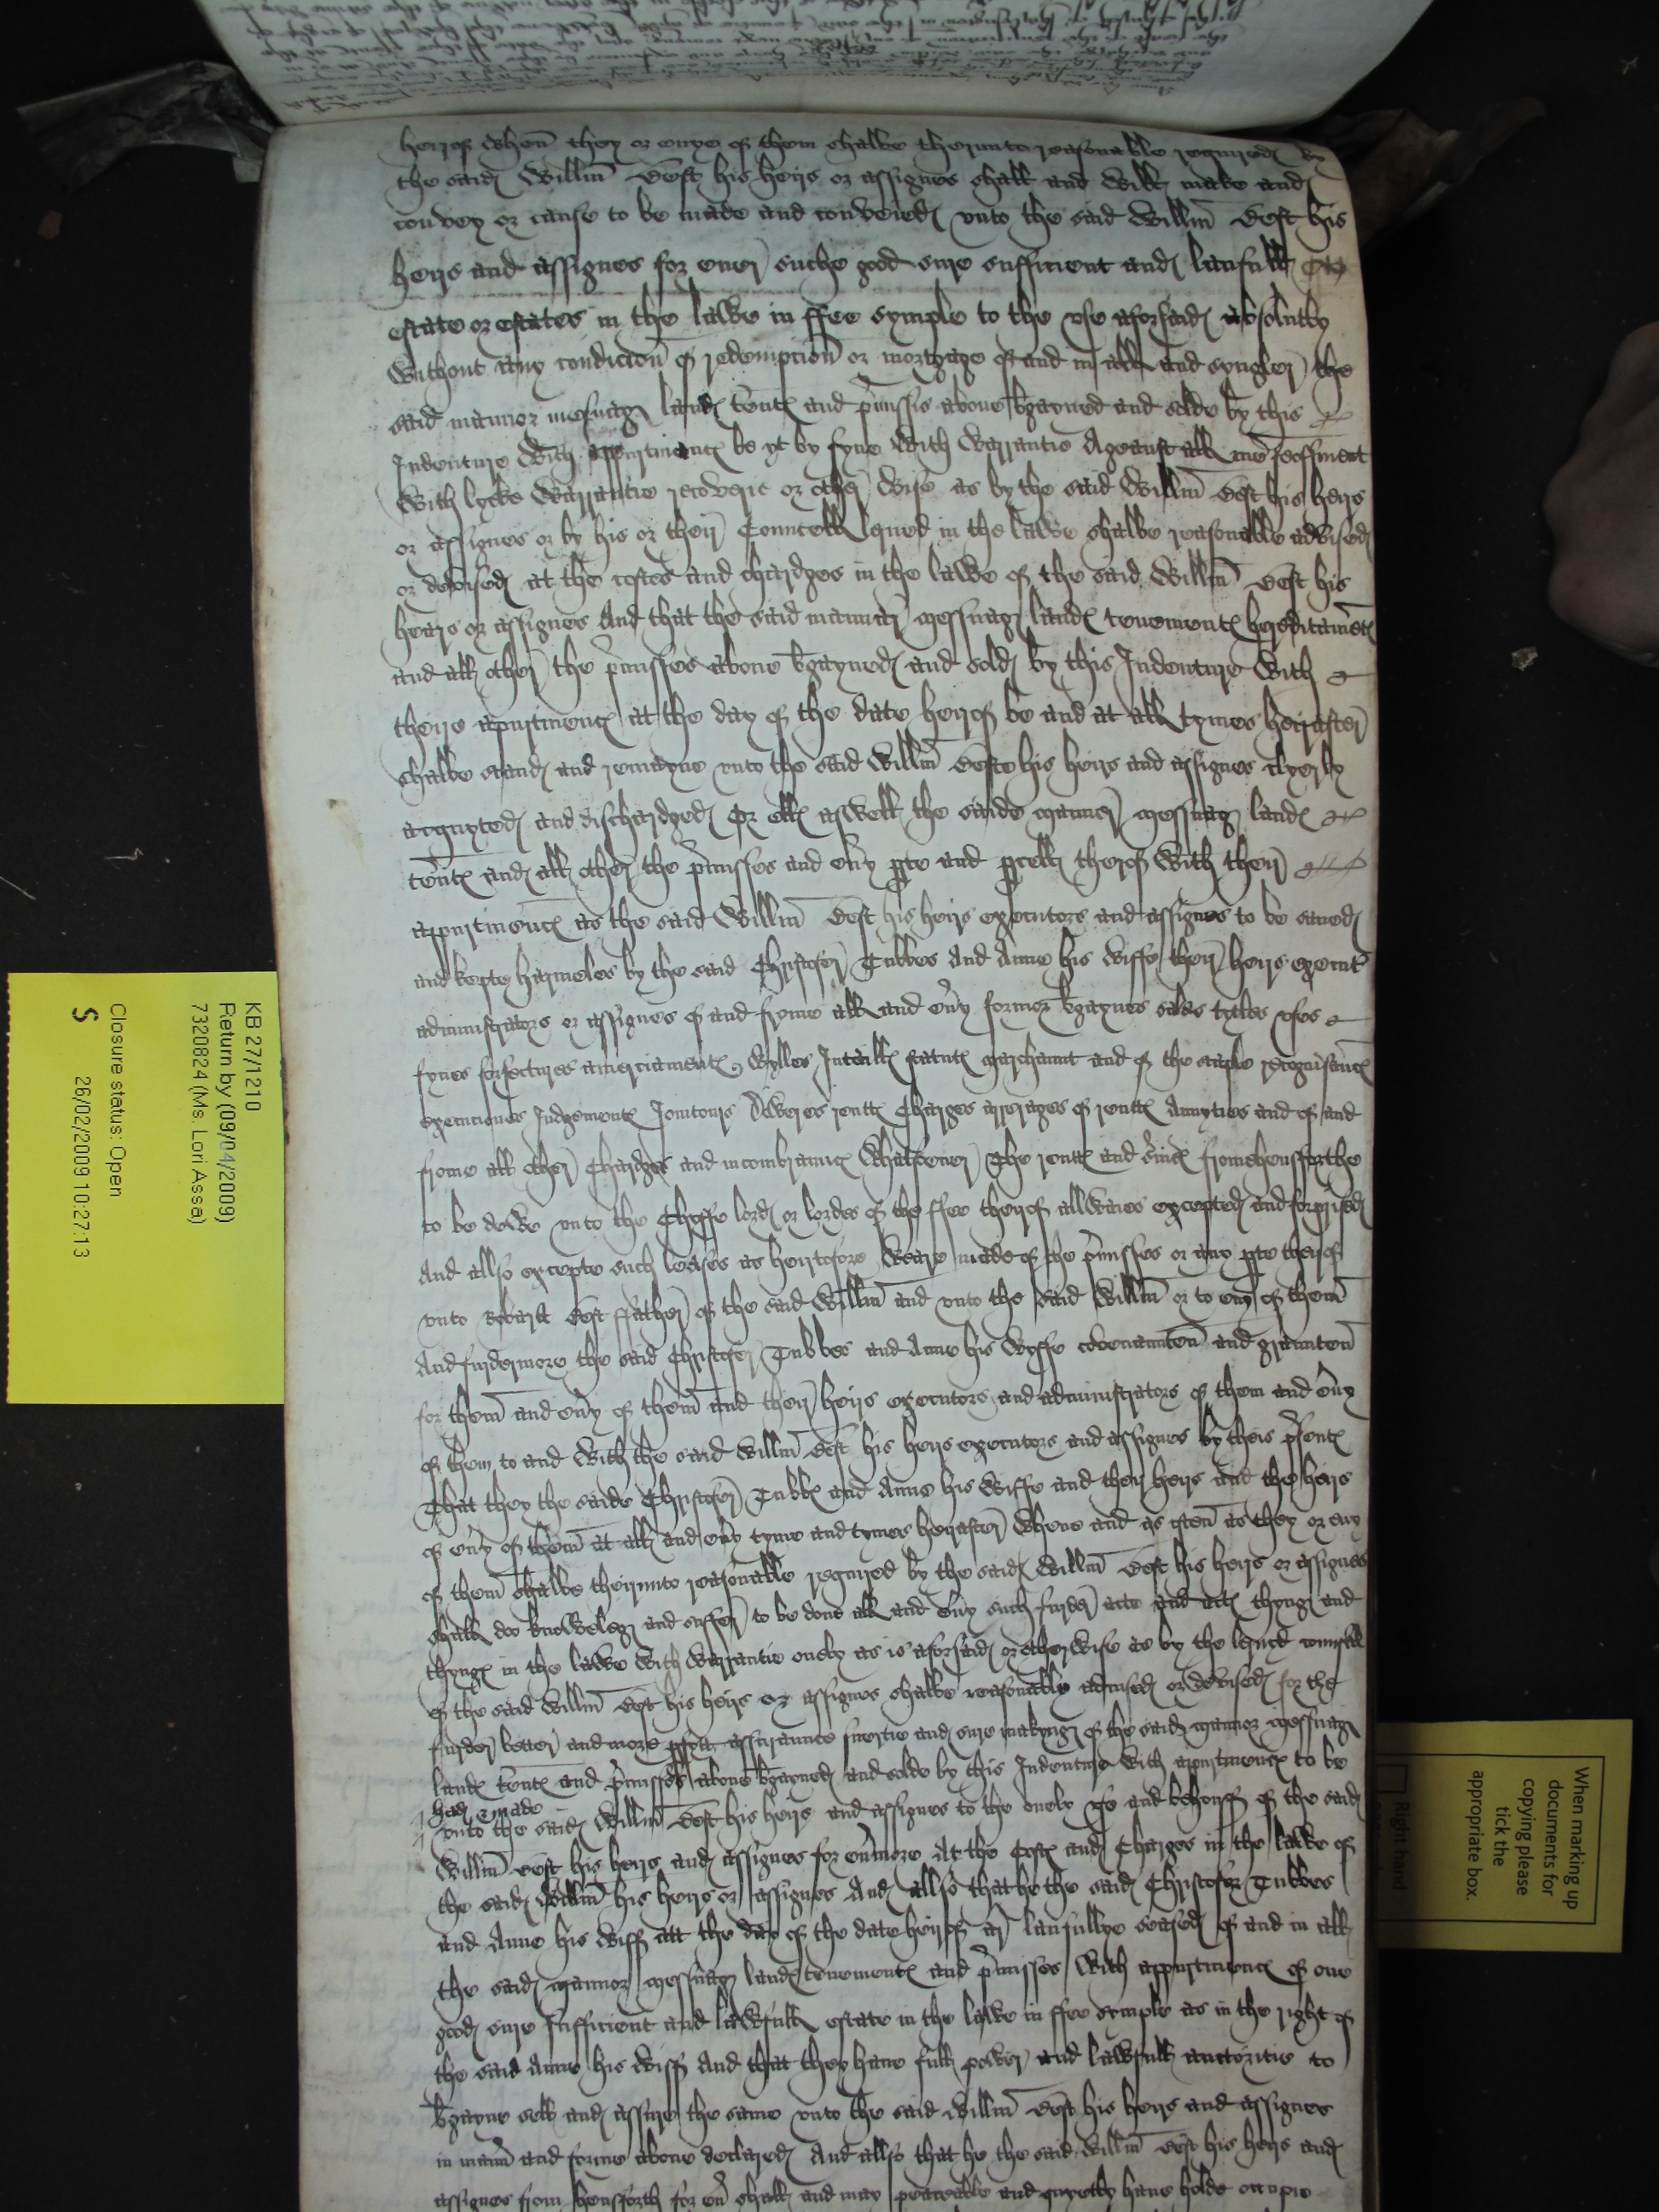 herof when they or enye of them shalbe therunto reasonable required by
the said Willm Best his heirs or assignes shall and will make and
convey or cause to be made and conveied unto the said Willm Best his
heirs and assignes for ever suche good sure sufficient and laufull
estate or estates in the lawe in ffee symple to the use aforsaid absolutly
without any condicion of redempcion or morgage of and in all and synguler the
said mannor mesuag landes tentes and pmissis above bgayned and solde by this
Indenture with appurtinences be yt by fyne with warrantie Ageanst all men feoffment
with lycke warrantie recoverie or other wise as by the said Willm Best his heirs
or assignes or by his or their Councell lerned in the lawe shalbe reasonable advised
or devised at the costes and chardges in the lawe of the said Willm Best his
hears or assignes And that the said mannor messuag landes tenementes hereditamentes
and all other the pmisses above bgayned and sold by this Indenture with
theire appurtinences at the day of the date herof be and at all tymes herafter
shalbe stand and remayne unto the said Willm Beste his heirs and assignes clyerly
acquyted and dischardged Or elles aswell the saide mannor messuag landes
tentes and all other the pmisses and evy pte and pcell therof with their
appurtinences as the said Willm Best his heirs executors and assignes to be saved
and kepte harmeles by the said Christofer Tubbes And Anne his wiffe their heirs execut
administrators or assignes of and frome all and evy former bgaynes sales tytles uses
fynes forfectures amerciamentes Wylles Intailles statutes marchaunt and of the staple recognisances
execuciones Judgementes Jointours Dowers rentes Charges arrerages of rentes Annyties and of and
frome all other Chardges and incombrances Whatsoever The rentes and svices fromehensforthe
to be dewe unto the Cheffe lord or lordes of the ffee therof allwaies excepted and forprised
And allso excepte such leases as heirtofore weare made of the pmisses or any pte therof
unto Robart Best ffather of the said Willm and unto the said Willm or to eny of them
And furdermore the said Christofer Tubbes and Anne his Wyffe covenaunten and graunten
for them and evy of them and their heirs executors and administrators of them and evy
of them to and with the said Willm Best his heirs executors and assignes by theis psentes
That they the saide Christofer Tubbes and Anne his Wiffe and their heirs and the heirs
of evy of them at all and evy tyme and tymes herafter Whene and as often as they or eny
of them shalbe therunto reasonable required by the said Willm Best his heirs or assignes
shall doo knoweleg and suffer to be done all and evy such furder acte and actes thyng and
thynges in the lawe with warrantie onely as is aforsaid or otherwise as by the lerned counsell
of the said Willm Best his heirs or assignes shalbe reasonably advised or devised for the
furder better and more pfytt assuraunce suertie and sure makyng of the said mannor messuag
landes tentes and pmisses above bgayned and solde by this Indenture with appurtinences to be
had & made
unto the said Willm Best his heirs and assignes to the onely use and behouff of the said
Willm Best his heirs and assignes for evmore At the Costes and Charges in the lawe of
the said Willm his heirs or assignes And allso that he the said Christofor Tubbes
and Anne his Wiff att the day of the date heirof ar laufullye seased of and in all
the said mannor messuag landes tenementes and pmisses With appurtinences of one
good sure sufficient and lawfull estate in the lawe in ffee symple as in the right of
the said Anne his Wiff And that they have full power and lawfull auctoritie to
bgayne sell and assure the same unto the said Willm Best his heirs and assignes
in mann and forme above declared And allso that he the said Willm Best his heirs and
assignes from hensforth for ev shall and may peaceable and quyetly have holde occupie

KB 27/1210
Return by (09/04/2009)
7320824 (Ms. Lori Assa)
Closure status: Open
26/02/2009 10:27:13
S

When marking up
documents for
copying please
tick the
appropriate box.
Right hand